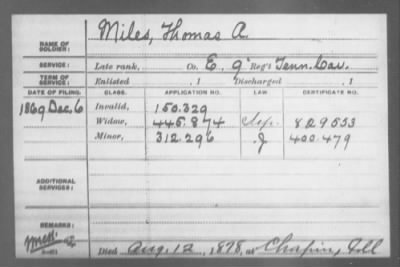 NAME OF SOLDIER: Miles, Thomas A.
SERVICE: Late rank, Co. E, 9" Reg't Tenn. Cav.
TERM OF SERVICE: Enlisted , 1 Discharged , 1
DATE OF FILING. CLASS. APPLICATION NO. LAW. CERTIFICATE NO.
1869 Dec. 6 Invalid, 150.329
Widow, 445.874 829553
Minor, 312.296 J 400.479
ADDITIONAL SERVICES:
REMARKS:
Died Aug. 12, 1878, at Chapin, Ill